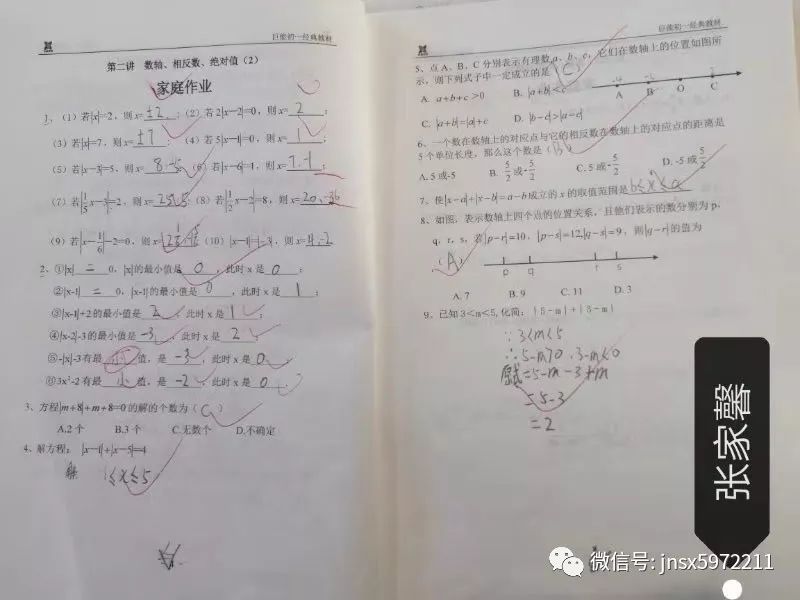 巨能初一经典教材
第二讲 数轴、相反数、绝对值（2）
家庭作业
1、（1）若|x|=2，则x=±2；（2）若2|x-2|=0，则x=2；
（3）若|x|=7，则x=±7；（4）若5|x-1|=0，则x=1；
（5）若|x-3|=5，则x=8；（6）若|x-6|=1，则x=7.
（7）若|1/5 x-3|=2，则x=；（8）若|1/2 x-2|=8，则x=20、
（9）若|x-1/6|-2=0，则x=（10）|x-1|=|-3|，则x=4.-2
2、①|x| = 0，|x|的最小值是 0，此时x是 0；
②|x-1| = 0，|x-1|的最小值是 0，此时x是 1；
③|x-1|+2的最小值是 2，此时x是 1；
④|x-2|-3的最小值是 -3，此时x是 2；
⑤-|x|-3有最 值，是 -3，此时x是 0；
⑥3x²-2有最 小 值，是 -2，此时x是 0
3、方程|m+8|+m+8=0的解的个数为（C）
A.2个 B.3个 C.无数个 D.不确定
4、解方程： |x-1|+|x-5|=4
解 1≤x≤5
巨能初一经典教材
5、点A、B、C分别表示有理数a、b、c，它们在数轴上的位置如图所
示，则下列式子中一定成立的是（C）
A. a+b+c>0 B. |a+b|<c
A B O C
C. |a+b|=|a|+c D. |b-c|>|a-c|
6、一个数在数轴上的对应点与它的相反数在数轴上的对应点的距离是
5个单位长度，那么这个数是（B）
A. 5或-5 B. 5/2或-5/2 C. 5或-5/2 D. -5或5/2
7、使|x-a|+|x-b|=a-b成立的x的取值范围是b≤x≤a
8、如图，表示数轴上四个点的位置关系，且他们表示的数分别为p、
q、r、s，若|p-r|=10，|p-s|=12,|q-s|=9，则|q-r|的值为
（A）
p q r s
A. 7 B. 9 C. 11 D. 3
9、已知3<m<5,化简：|5-m|+|3-m|
∵3<m<5
∴5-m>0 .3-m<0
原式=5-m-3+m
=5-3
=2
张家馨
微信号: jnsx5972211